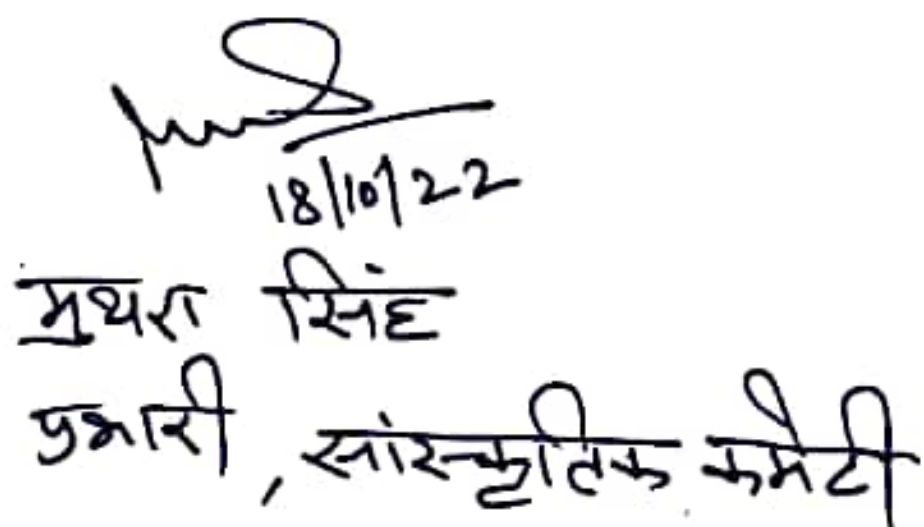 18/10/22
मुथरा सिंह
प्रभारी, सांस्कृतिक कमेटी